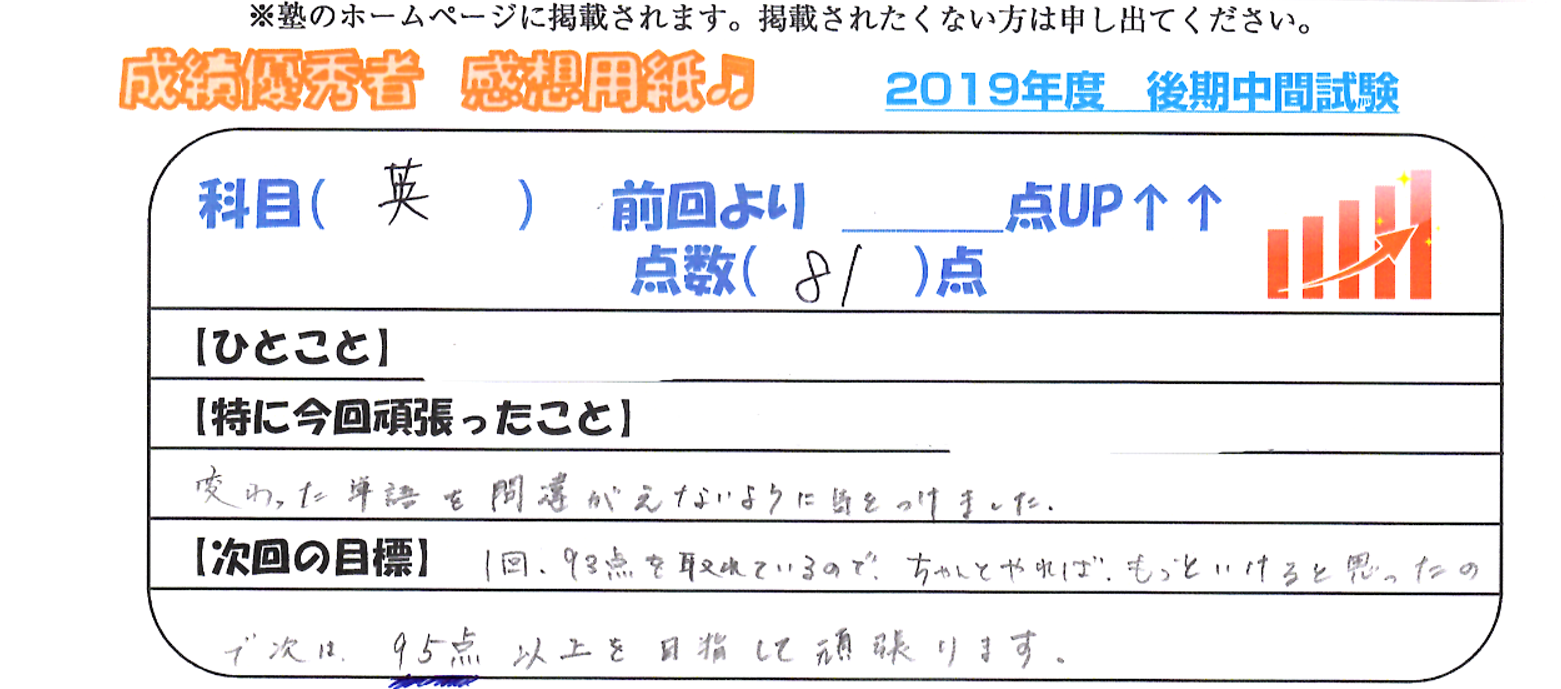 ※塾のホームページに掲載されます。掲載されたくない方は申し出てください。
成績優秀者 感想用紙♫ 2019年度 後期中間試験
科目( 英 ) 前回より 点UP↑↑
点数( 81 )点
【ひとこと】
【特に今回頑張ったこと】
変わった単語を間違がえないように気をつけました.
【次回の目標】 1回、93点を取れているので、ちゃんとやれば、もっといけると思ったの
で次は、95点以上を目指して頑張ります。